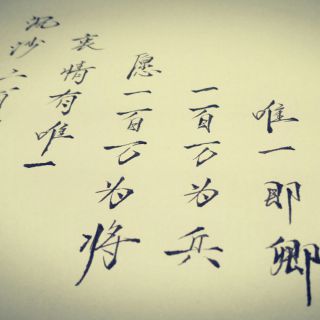 沙
衷情有唯一
愿一百万为将
一百万为兵
唯一即卿